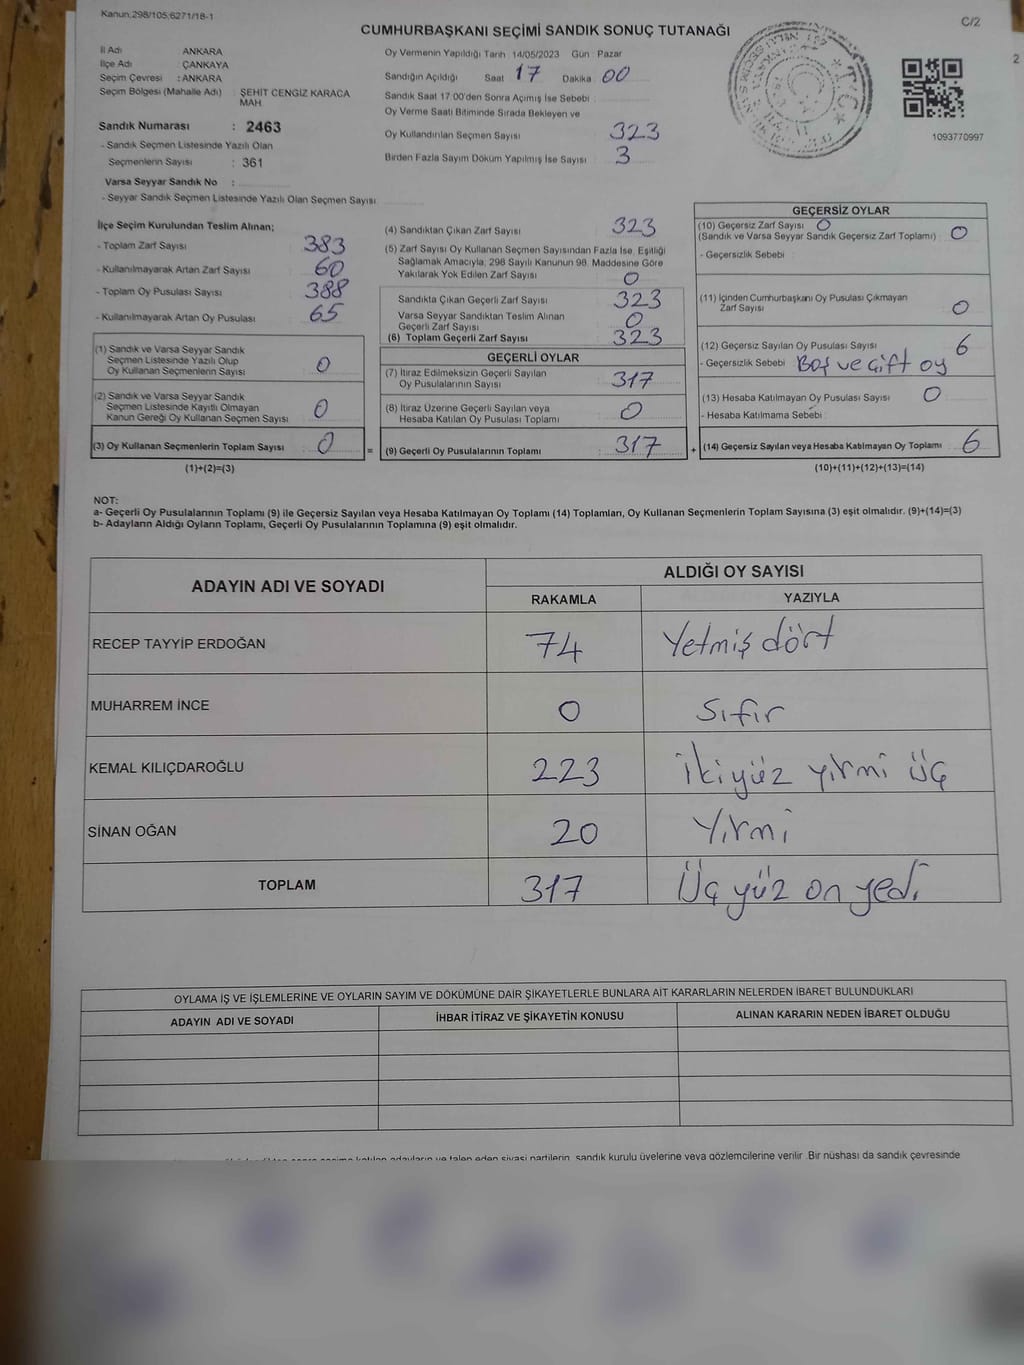 Kanun;298/105;6271/18-1
C/2
CUMHURBAŞKANI SEÇİMİ SANDIK SONUÇ TUTANAĞI
2
İl Adı ANKARA
İlçe Adı : ÇANKAYA
Seçim Çevresi : ANKARA
Seçim Bölgesi (Mahalle Adı) : ŞEHİT CENGİZ KARACA
MAH.
Sandık Numarası : 2463
- Sandık Seçmen Listesinde Yazılı Olan
Seçmenlerin Sayısı : 361
Varsa Seyyar Sandık No :
- Seyyar Sandık Seçmen Listesinde Yazılı Olan Seçmen Sayısı
Oy Vermenin Yapıldığı Tarih 14/05/2023 Gün : Pazar
Sandığın Açıldığı Saat 17 Dakika 00
Sandık Saat 17:00'den Sonra Açımış İse Sebebi :
Oy Verme Saati Bitiminde Sırada Bekleyen ve
Oy Kullandırılan Seçmen Sayısı 323
Birden Fazla Sayım Döküm Yapılmış İse Sayısı 3
1093770997
İlçe Seçim Kurulundan Teslim Alınan;
- Toplam Zarf Sayısı 383
- Kullanılmayarak Artan Zarf Sayısı 60
- Toplam Oy Pusulası Sayısı 388
- Kullanılmayarak Artan Oy Pusulası 65
(1) Sandık ve Varsa Seyyar Sandık
Seçmen Listesinde Yazılı Olup
Oy Kullanan Seçmenlerin Sayısı 0
(2) Sandık ve Varsa Seyyar Sandık
Seçmen Listesinde Kayıtlı Olmayan
Kanun Gereği Oy Kullanan Seçmen Sayısı 0
(3) Oy Kullanan Seçmenlerin Toplam Sayısı 0
(1)+(2)=(3)
(4) Sandıktan Çıkan Zarf Sayısı 323
(5) Zarf Sayısı Oy Kullanan Seçmen Sayısından Fazla İse, Eşitliği
Sağlamak Amacıyla, 298 Sayılı Kanunun 98. Maddesine Göre
Yakılarak Yok Edilen Zarf Sayısı 0
Sandıkta Çıkan Geçerli Zarf Sayısı 323
Varsa Seyyar Sandıktan Teslim Alınan
Geçerli Zarf Sayısı 0
(6) Toplam Geçerli Zarf Sayısı 323
GEÇERLİ OYLAR
(7) İtiraz Edilmeksizin Geçerli Sayılan
Oy Pusulalarının Sayısı 317
(8) İtiraz Üzerine Geçerli Sayılan veya
Hesaba Katılan Oy Pusulası Toplamı 0
= (9) Geçerli Oy Pusulalarının Toplamı 317
GEÇERSİZ OYLAR
(10) Geçersiz Zarf Sayısı 0
(Sandık ve Varsa Seyyar Sandık Geçersiz Zarf Toplamı) 0
- Geçersizlik Sebebi
(11) İçinden Cumhurbaşkanı Oy Pusulası Çıkmayan
Zarf Sayısı 0
(12) Geçersiz Sayılan Oy Pusulası Sayısı 6
- Geçersizlik Sebebi Boş ve Çift oy
(13) Hesaba Katılmayan Oy Pusulası Sayısı 0
- Hesaba Katılmama Sebebi
+ (14) Geçersiz Sayılan veya Hesaba Katılmayan Oy Toplamı 6
(10)+(11)+(12)+(13)=(14)
NOT:
a- Geçerli Oy Pusulalarının Toplamı (9) ile Geçersiz Sayılan veya Hesaba Katılmayan Oy Toplamı (14) Toplamları, Oy Kullanan Seçmenlerin Toplam Sayısına (3) eşit olmalıdır. (9)+(14)=(3)
b- Adayların Aldığı Oyların Toplamı, Geçerli Oy Pusulalarının Toplamına (9) eşit olmalıdır.
ADAYIN ADI VE SOYADI
ALDIĞI OY SAYISI
RAKAMLA YAZIYLA
RECEP TAYYİP ERDOĞAN 74 Yetmiş dört
MUHARREM İNCE 0 Sıfır
KEMAL KILIÇDAROĞLU 223 İkiyüz yirmi üç
SİNAN OĞAN 20 Yirmi
TOPLAM 317 Üç yüz on yedi
OYLAMA İŞ VE İŞLEMLERİNE VE OYLARIN SAYIM VE DÖKÜMÜNE DAİR ŞİKAYETLERLE BUNLARA AİT KARARLARIN NELERDEN İBARET BULUNDUKLARI
ADAYIN ADI VE SOYADI İHBAR İTİRAZ VE ŞİKAYETİN KONUSU ALINAN KARARIN NEDEN İBARET OLDUĞU
sandık kurulu üyelerine veya gözlemcilerine verilir. Bir nüshası da sandık çevresinde